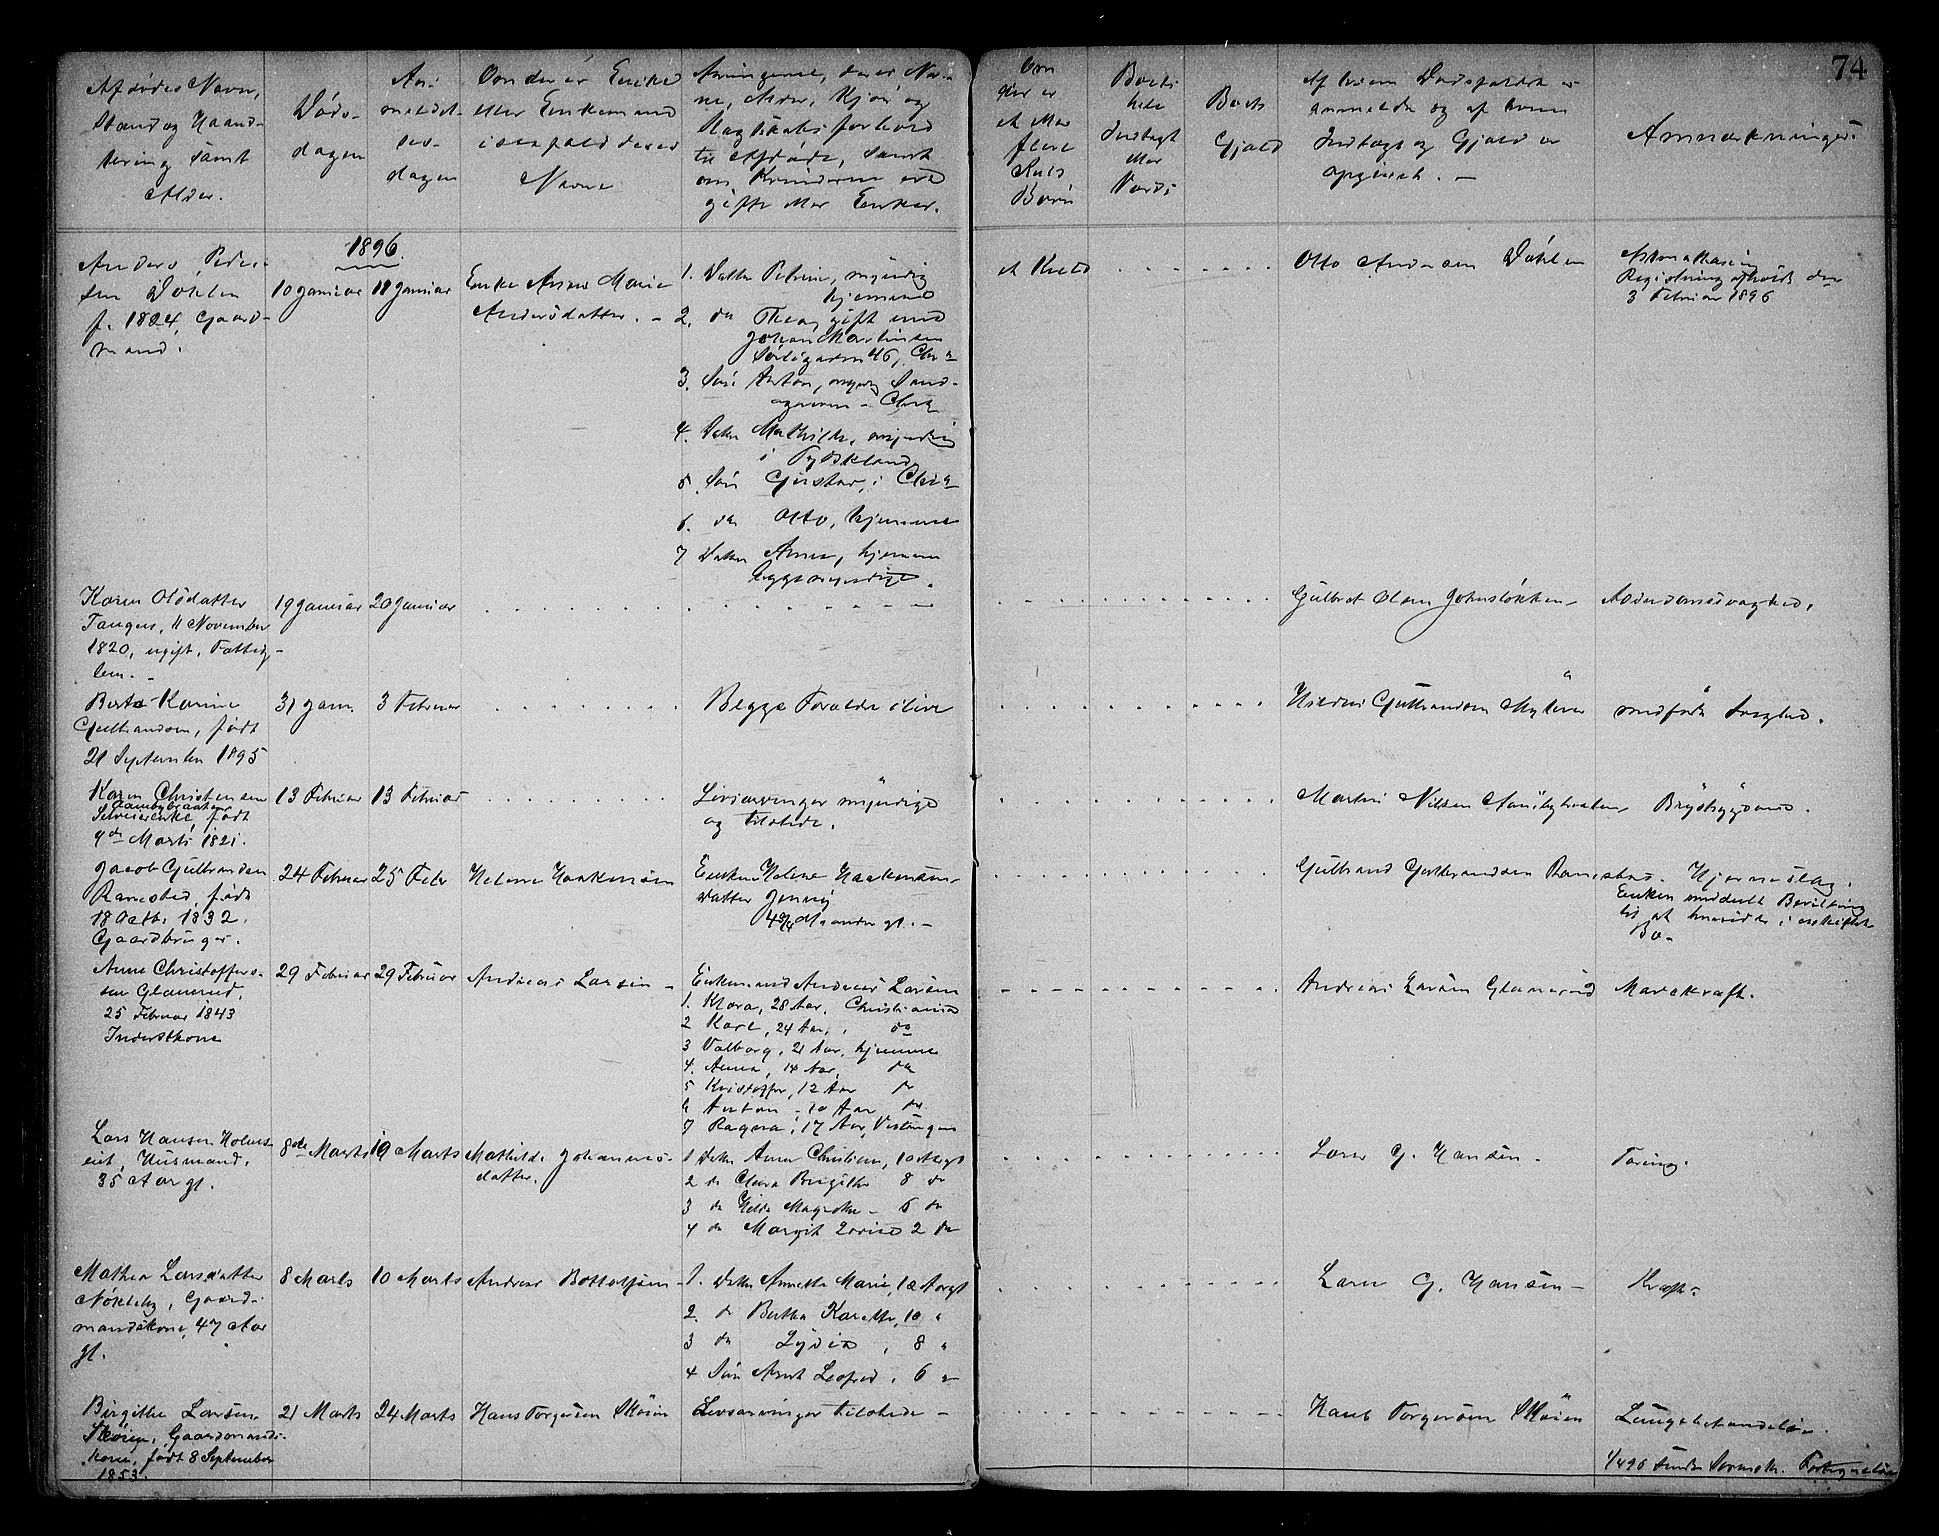 74
Afdødes Navn,
Stand og Haand-
tering samt
Alder.
Døds-
dagen
An-
meldel-
ses-
dagen
Om der er Enke
eller Enkemand
i saafald deres
Navne
Arvingerne, deres Nav-
ne, Alder, Kjøn og
Slagtskabsforhold
til Afdøde, samt
om Kvinderne ere
gifte eller Enker.
Om
der er
et eller
flere
Kuld
Børn
Boets
hele
Indtægt
eller
Værdi
Boets
Gjæld
Af hvem Dødsfaldet er
anmeldt og af hvem
Indtægt og Gjæld er
opgivet. -
Anmærkninger
1896
Anders Peder-
sen Døhlen
f. 1824, Gaard-
mand.
10 Januar
18 Januar
Enke Anne Marie
Andersdatter. -
1. Datter Petrine, myndig
hjemme
2. do Thea, gift med
Johan Martinsen
3. Søn Anton, myndig
4. Datter Mathilde, myndig
i Tydskland
5. Søn Gustav, i Chr.a
6. do Otto, hjemme
7 Datter Anna, hjemme
begge myndige.
et Kuld
Otto Andersen Døhlen
Registrering afholdt den
3 Februar 1896
Karen Olsdatter
Tangen, 11 November
1820, ugift, Fattig-
lem. -
19 Januar
20 Januar
Gulbrand Olsen
Alderdomssvaghed.
Berta Karine
Gulbrandsen, født
21 September 1895
31 Jan.
3 Februar
Begge Forældre i live
Gulbrandsen
medfødt Svaghed.
Karen Christensen
Selveierenke, født
9de Marts 1821.
13 Februar
13 Februar
Livsarvinger myndige
og tilstede.
Martin Nilsen
Brystsygdom.
Jacob Gulbrandsen
Ramstad, født
18 Octb. 1832.
Gaardbruger.
24 Februar
25 Febr
Helene Haakensen
Enken Helene Haakens-
datter Jenny
Maaneder gl. -
Gulbrand Gulbrandsen Ramstad.
Hjerneslag.
Enken meddelt Bevilling
til at hensidde i uskiftet
Bo -
Anne Christoffer-
sen Glamerud.
25 Februar 1843
Inderstkone
29 Februar
29 Februar
Andreas Larsen -
Enkemand Andreas Larsen
1. Klara, 28 Aar, Christiania
2 Karl, 24 Aar, do
3 Valborg, 21 Aar, hjemme
4. Anna, 14 Aar, do
5 Kristoffer, 12 Aar do
6 Anton - 10 Aar do
7 Ragna, 17 Aar,
Andreas Larsen Glamerud
Mavekræft.
Lars Hansen Holm-
eiet, Husmand.
35 Aar gl.
8de Marts
19 Marts
Mathilde Johannes-
datter.
1 Datter Anna Christine, 10 Aar gl
2 do Clara Birgitte 8 do
3 do Hilda 6 do
4 do Margit Lovise 2 do
Lars G. Hansen -
Tæring.
Mathea Larsdatter
Nøkleby, Gaard-
mandskone, 47 Aar
gl.
8 Marts
10 Marts
Andreas Bottolfsen
1. Datter Annette Marie, 12 Aar gl
2. do Bertha Karette, 10 "
3 do Lydia, 8 "
4 Søn 6 "
Lars G. Hansen -
Kræft -
Birgithe Larsen
Skøien, Gaardmands-
kone, født 8 September
1853.
21 Marts
24 Marts
Hans Torgersen Skøien
Livsarvinger tilstede -
Hans Torgersen Skøien
Lungebetændelse.